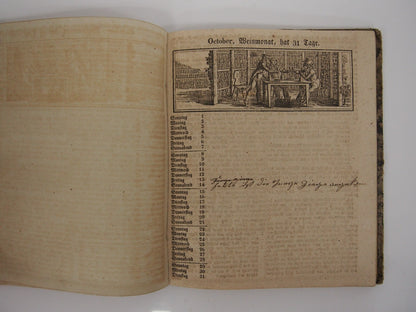 October, Weinmonat, hat 31 Tage.
Sonntag 1
Montag 2
Dienstag 3
Mittwoch 4
Donnerstag 5
Freitag 6
Sonnabend 7
Sonntag 8
Montag 9
Dienstag 10
Mittwoch 11
Donnerstag 12
Freitag 13
Sonnabend 14
Sonntag 15
Montag 16
Dienstag 17
Mittwoch 18
Donnerstag 19
Freitag 20
Sonnabend 21
Sonntag 22
Montag 23
Dienstag 24
Mittwoch 25
Donnerstag 26
Freitag 27
Sonnabend 28
Sonntag 29
Montag 30
Dienstag 31